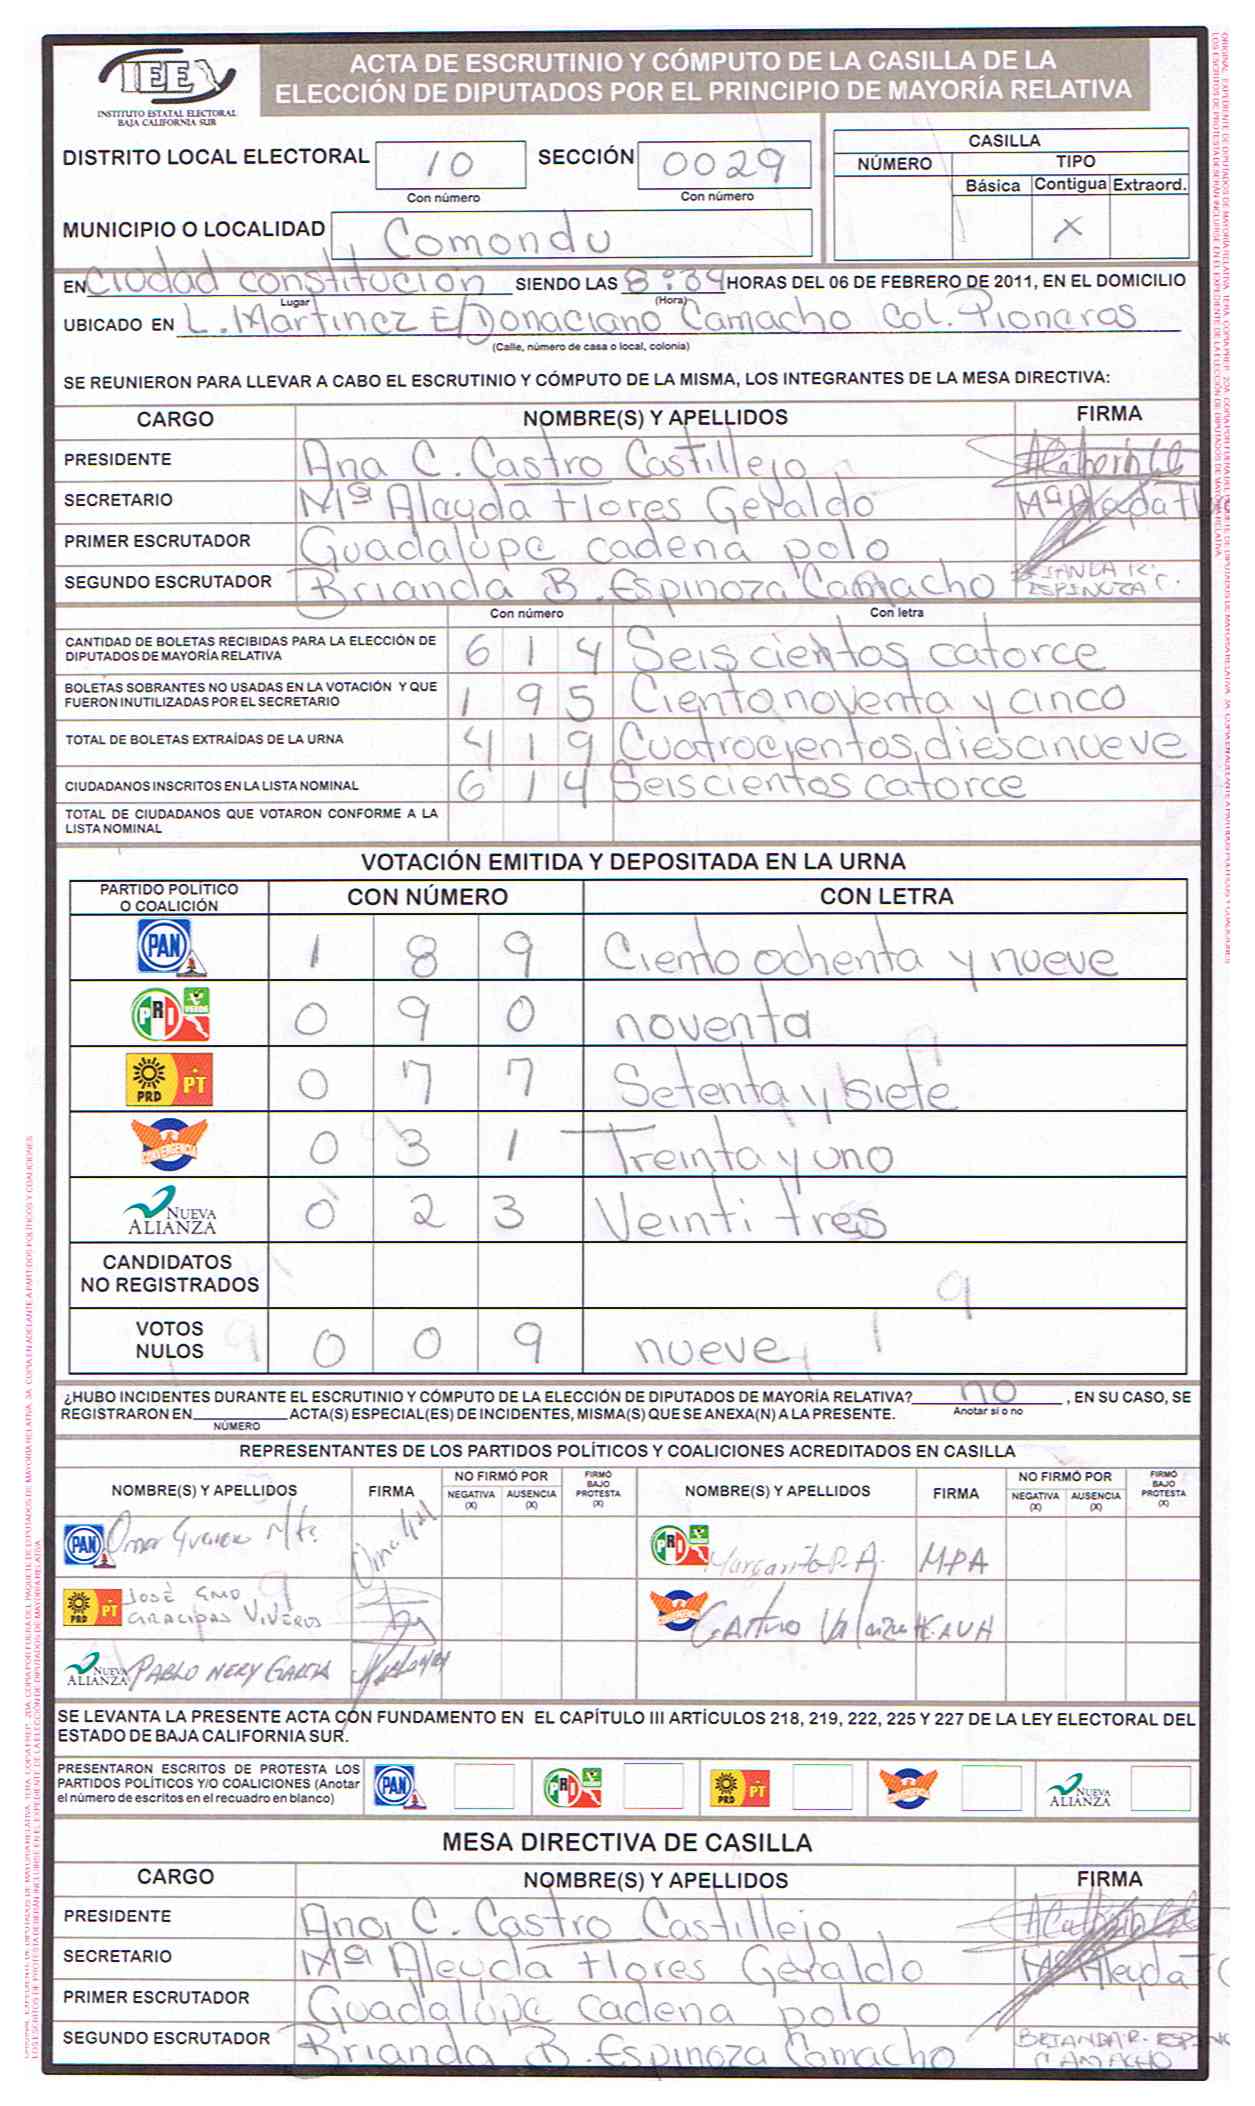 IEE
INSTITUTO ESTATAL ELECTORAL
BAJA CALIFORNIA SUR
ACTA DE ESCRUTINIO Y CÓMPUTO DE LA CASILLA DE LA
ELECCIÓN DE DIPUTADOS POR EL PRINCIPIO DE MAYORÍA RELATIVA
DISTRITO LOCAL ELECTORAL 10 SECCIÓN 0029
Con número Con número
CASILLA
NÚMERO TIPO
Básica Contigua Extraord.
X
MUNICIPIO O LOCALIDAD Comondu
EN Ciudad constitución SIENDO LAS 8:34 HORAS DEL 06 DE FEBRERO DE 2011, EN EL DOMICILIO
Lugar (Hora)
UBICADO EN L. Martinez E/Donaciano Camacho Col. Pioneros
(Calle, número de casa o local, colonia)
SE REUNIERON PARA LLEVAR A CABO EL ESCRUTINIO Y CÓMPUTO DE LA MISMA, LOS INTEGRANTES DE LA MESA DIRECTIVA:
CARGO NOMBRE(S) Y APELLIDOS FIRMA
PRESIDENTE Ana C. Castro Castillejo
SECRETARIO Mª Aleyda Flores Geraldo Mª Aleyda
PRIMER ESCRUTADOR Guadalupe cadena polo
SEGUNDO ESCRUTADOR Brianda B. Espinoza Camacho ESPINOZA C.
Con número Con letra
CANTIDAD DE BOLETAS RECIBIDAS PARA LA ELECCIÓN DE
DIPUTADOS DE MAYORÍA RELATIVA 6 1 4 Seiscientos catorce
BOLETAS SOBRANTES NO USADAS EN LA VOTACIÓN Y QUE
FUERON INUTILIZADAS POR EL SECRETARIO 1 9 5 Ciento noventa y cinco
TOTAL DE BOLETAS EXTRAÍDAS DE LA URNA 4 1 9 Cuatrocientos diesanueve
CIUDADANOS INSCRITOS EN LA LISTA NOMINAL 6 1 4 Seiscientos catorce
TOTAL DE CIUDADANOS QUE VOTARON CONFORME A LA
LISTA NOMINAL
VOTACIÓN EMITIDA Y DEPOSITADA EN LA URNA
PARTIDO POLÍTICO
O COALICIÓN CON NÚMERO CON LETRA
PAN 1 8 9 Ciento ochenta y nueve
PRI VERDE 0 9 0 noventa
PRD PT 0 7 7 Setenta y siete
CONVERGENCIA 0 3 1 Treinta y uno
NUEVA ALIANZA 0 2 3 Veinti tres
CANDIDATOS
NO REGISTRADOS
VOTOS
NULOS 0 0 9 nueve
¿HUBO INCIDENTES DURANTE EL ESCRUTINIO Y CÓMPUTO DE LA ELECCIÓN DE DIPUTADOS DE MAYORÍA RELATIVA? no , EN SU CASO, SE
Anotar sí o no
REGISTRARON EN ACTA(S) ESPECIAL(ES) DE INCIDENTES, MISMA(S) QUE SE ANEXA(N) A LA PRESENTE.
NÚMERO
REPRESENTANTES DE LOS PARTIDOS POLÍTICOS Y COALICIONES ACREDITADOS EN CASILLA
NOMBRE(S) Y APELLIDOS FIRMA NO FIRMÓ POR NEGATIVA (X) AUSENCIA (X) FIRMÓ BAJO PROTESTA (X) NOMBRE(S) Y APELLIDOS FIRMA NO FIRMÓ POR NEGATIVA (X) AUSENCIA (X) FIRMÓ BAJO PROTESTA (X)
PAN Omar PRI Margarito P. A. MPA
PRD PT José Gmo Viveros CONVERGENCIA Arturo
NUEVA ALIANZA PABLO NERY GARCIA
SE LEVANTA LA PRESENTE ACTA CON FUNDAMENTO EN EL CAPÍTULO III ARTÍCULOS 218, 219, 222, 225 Y 227 DE LA LEY ELECTORAL DEL
ESTADO DE BAJA CALIFORNIA SUR.
PRESENTARON ESCRITOS DE PROTESTA LOS
PARTIDOS POLÍTICOS Y/O COALICIONES (Anotar
el número de escritos en el recuadro en blanco)
PAN PRI PRD PT CONVERGENCIA NUEVA ALIANZA
MESA DIRECTIVA DE CASILLA
CARGO NOMBRE(S) Y APELLIDOS FIRMA
PRESIDENTE Ana C. Castro Castillejo
SECRETARIO Mª Aleyda Flores Geraldo Mª Aleyda
PRIMER ESCRUTADOR Guadalupe cadena polo
SEGUNDO ESCRUTADOR Brianda B. Espinoza Camacho CAMACHO